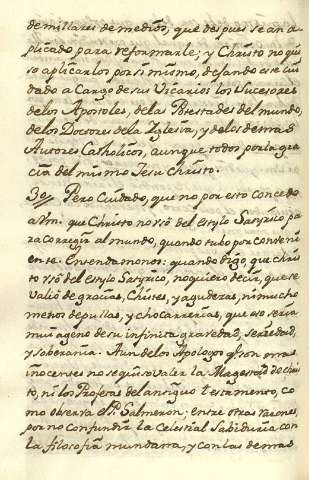 de millares de medios, que despues se an a-
plicado para reformarle; y Christo no qui
so aplicarlos por si mismo, dejando ese cui
dado a Cargo de sus Vicarios los Sucesores
de los Apostoles, de las Potestades del mundo,
de los Doctores de la Yglesia, y de los demas
Autores Catholicos, aunque todos por la gra
cia del mismo Jesu Christo.
30 Pero Cuidado, que no por esto concedo
a Vm. que Christo no usó del estylo Satyrico pa
ra corregir al mundo, quando tubo por conveni
ente. Entendamonos: quando digo que chris
to usó del estylo Satyrico, no quiero decir, que se
valió de gracias, Chistes, y agudezas, ni mucho
menos de pullas, y chocarrerias, que eso seria
mui ageno de su infinita gravedad, seriedad,
y soberania. Aun de los Apologos q̃ son mas
inocentes no se quiso valer la Magestad de Chris
to, ni los Profetas del antiguo testamento, co
mo observa el P. Salmeron; entre otras razones,
por no confundir la Celestial Sabiduria con
la filosofia mundana, y con las demas